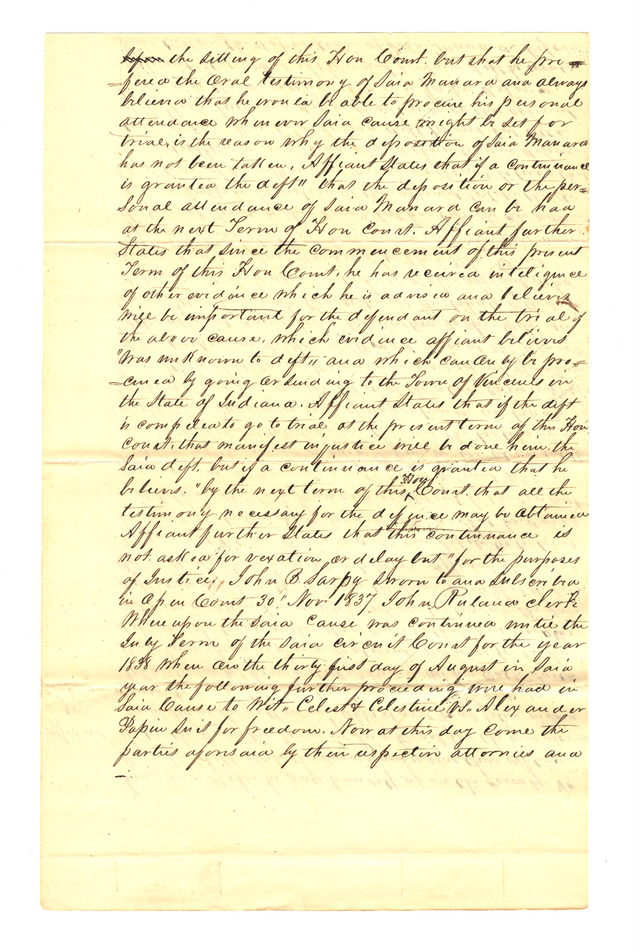 the sitting of this Hon Court. but that he pre=
=fered the Oral testimony of Said Manard and always
believed that he would be able to procure his personal
attendance when ever Said cause might be set for
trial, is the reason why the deposition of Said Manard
has not been taken, Affiant States that if a continuance
is granted the deft" that the deposition or the per=
sonal attendance of Said Manard can be had
at the next Term of Hon Court. Affiant further
States that since the commencement of this present
Term of this Hon Court, he has received inteligence
of other evidence which he is advised and believes
will be important for the defendant on the trial of
the above cause, which evidence affiant believes
"was unknown to deft" and which can only be pro=
=cured by going or sending to the Town of Vincens in
the State of Indiana. Affiant States that if the deft
is compelled to go to trial at the present term of this Hon
Court, that manifest injustice will be done him the
Said deft, but if a continuance is granted that he
believes "by the next term of this Hon Court, that all the
testimony necessary for the defence may be obtained
Affiant further States that this continuance is
not asked for vexation or delay but "for the purposes
of Justice, John B. Sarpy sworn to and subscribed
in Open Court 30" Nov. 1837. John Ruland clerk
Where upon the Said cause was continued until the
July Term of the Said circuit Court for the year
1838 when on the thirty first day of August in Said
year the following further proceeding were had in
Said Cause to Wit, Celest & Celestine vs. Alexander
Papin Suit for freedom. Now at this day come the
parties aforesaid by their respective attornies and